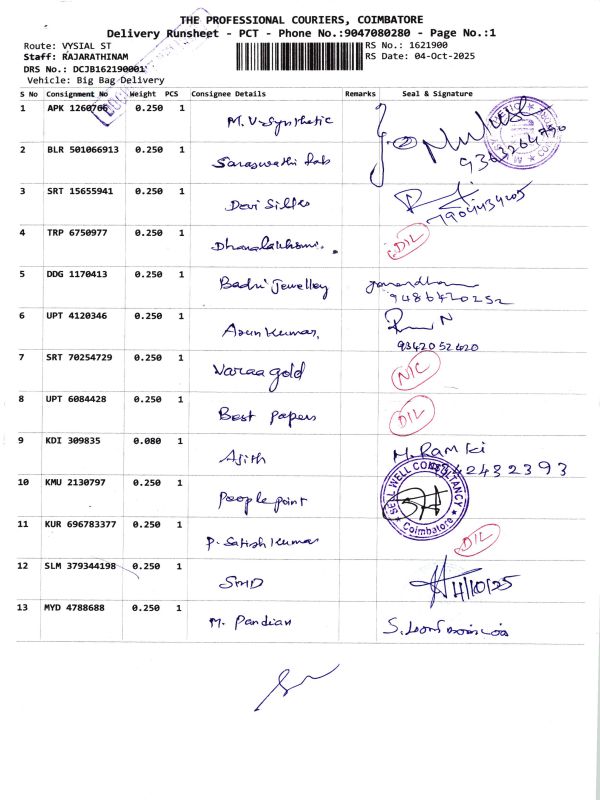 THE PROFESSIONAL COURIERS, COIMBATORE
Delivery Runsheet - PCT - Phone No.:9047080280 - Page No.:1
Route: VYSIAL ST RS No.: 1621900
Staff: RAJARATHINAM RS Date: 04-Oct-2025
DRS No.: DCJB162190001
Vehicle: Big Bag Delivery
S No Consignment No Weight PCS Consignee Details Remarks Seal & Signature
1 APK 1260766 0.250 1 M.V. Synthetic
9363264790
2 BLR 501066913 0.250 1 Saraswathi Fab
3 SRT 15655941 0.250 1 Devi Silks
7904434205
4 TRP 6750977 0.250 1 Dhanalakshmi. DIL
5 DDG 1170413 0.250 1 Badri Jewelley
9486420252
6 UPT 4120346 0.250 1 Arun Kumar,
9342052420
7 SRT 70254729 0.250 1 Varaa gold NIC
8 UPT 6084428 0.250 1 Best papers DIL
9 KDI 309835 0.080 1 Ajith M. Ram ki
9342432393
10 KMU 2130797 0.250 1 People point SELL WELL CONSULTANCY
Coimbatore
11 KUR 696783377 0.250 1 P. Satish Kumar DIL
12 SLM 379344198 0.250 1 SMD 4/10/25
13 MYD 4788688 0.250 1 M. Pandian